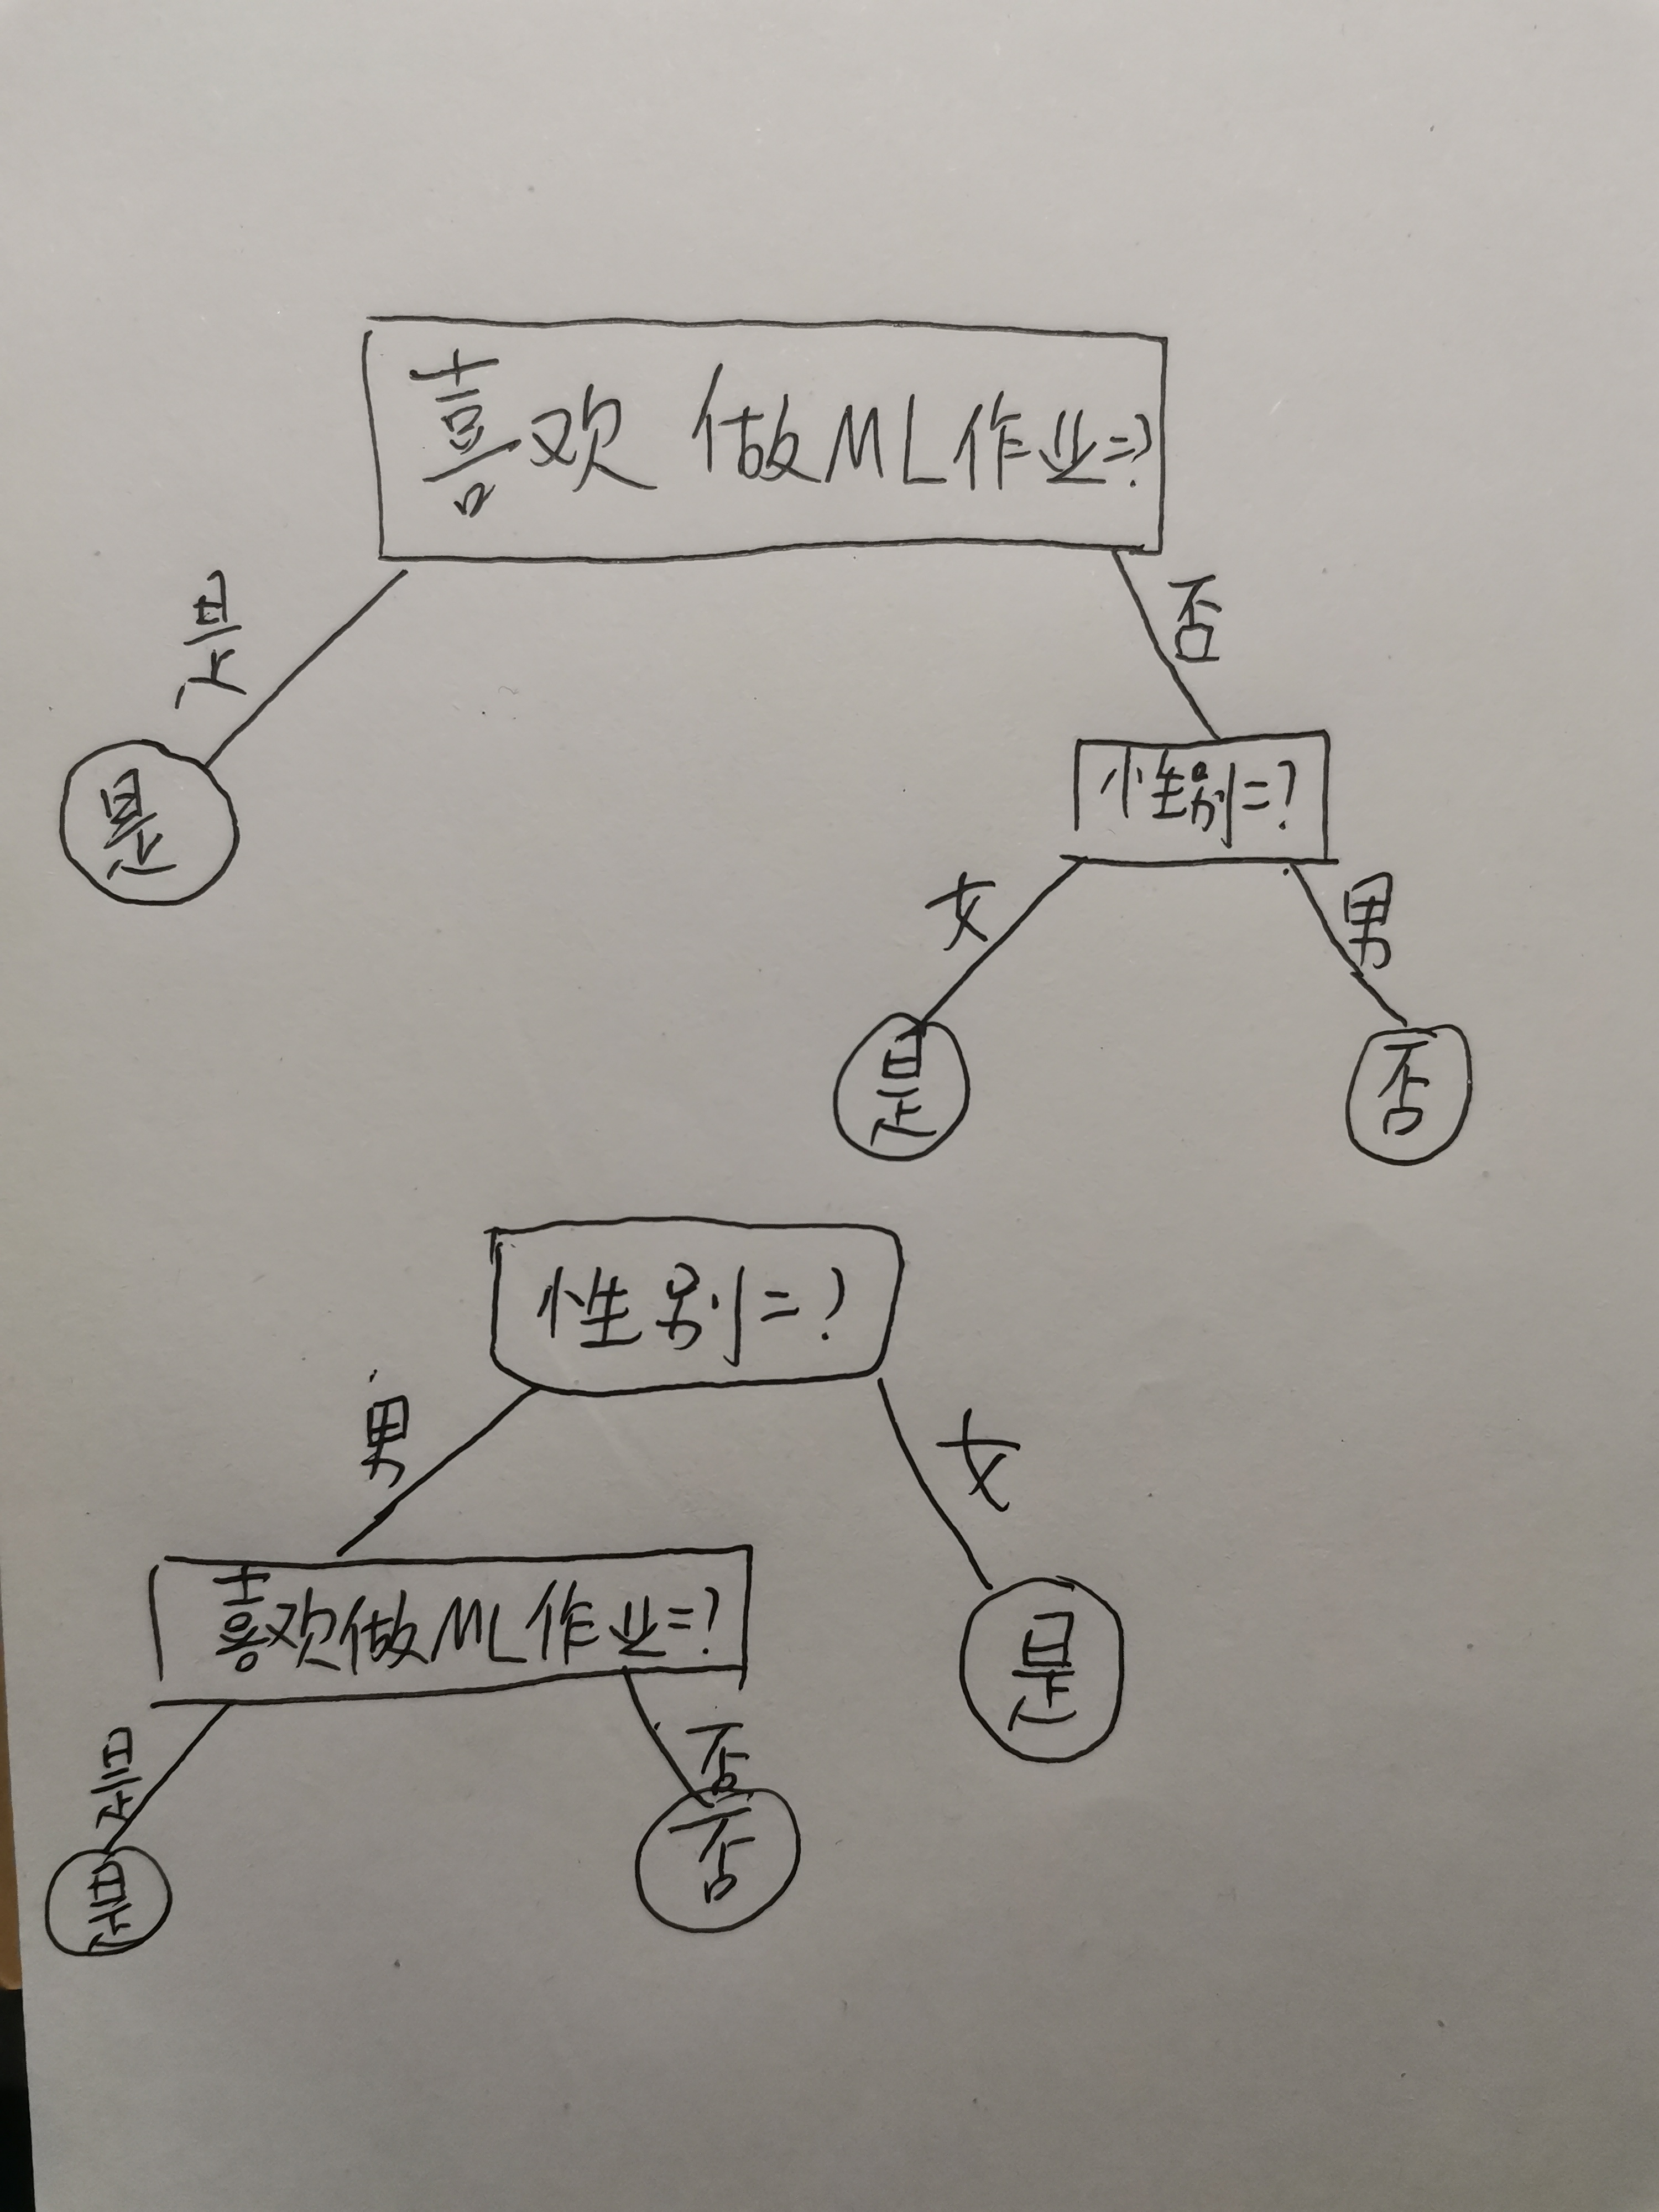 喜欢做ML作业=?
是
否
是
性别=?
女
男
是
否
性别=?
男
女
喜欢做ML作业=?
是
是
否
是
否